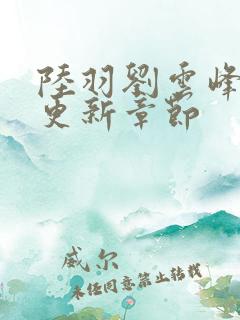 陸羽劉雲峰
更新章節
威尔
未经同意禁止转载